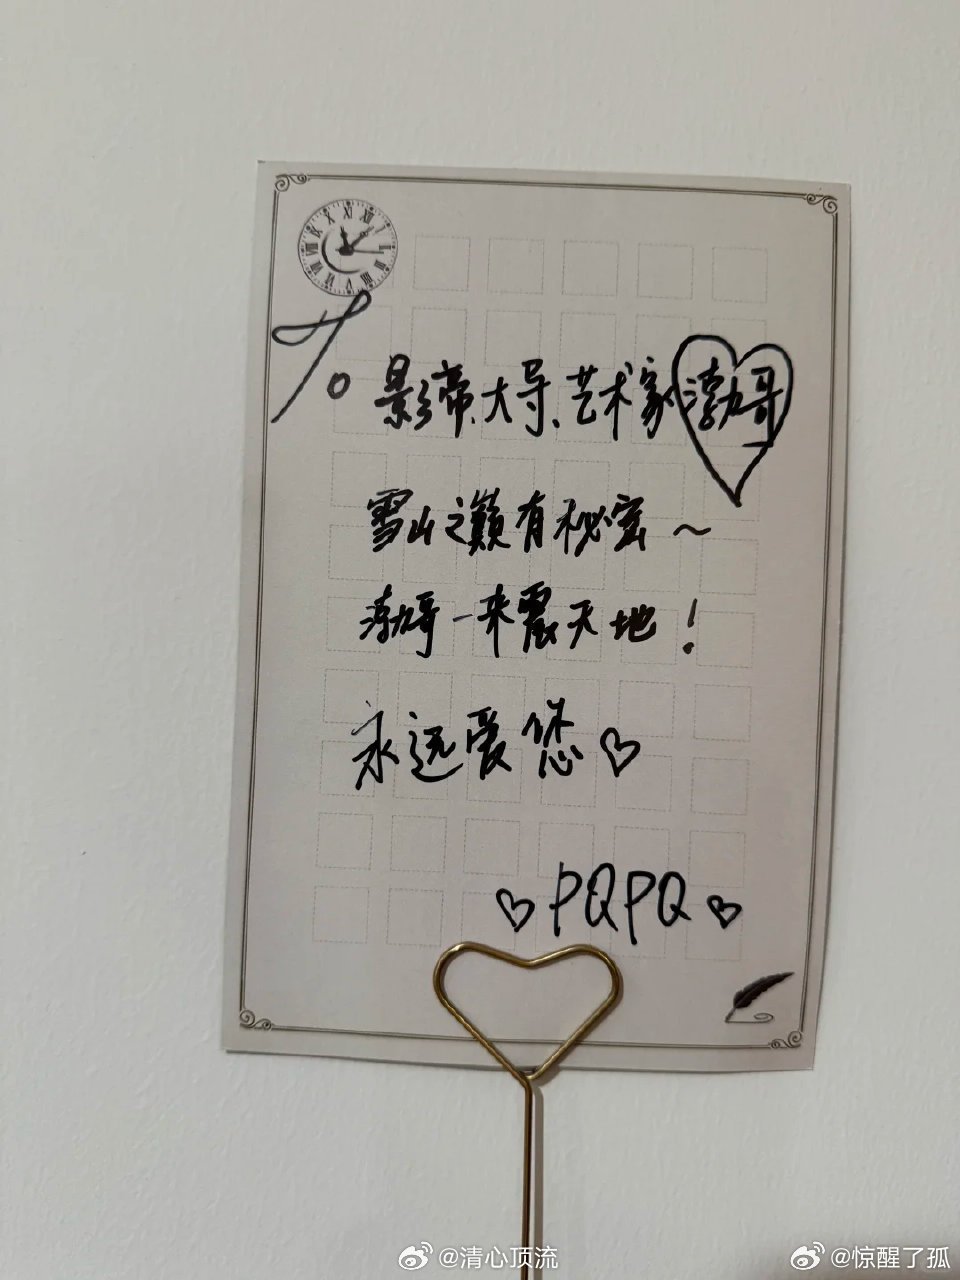 To 影帝、大导、艺术家渤哥
雪山之巅有秘密~
渤哥一来震天地！
永远爱您♡
♡PQPQ♡
@清心顶流
@惊醒了孤